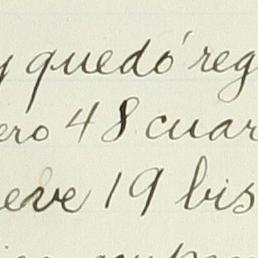 y quedó reg
ero 48 cuar
eve 19 bis